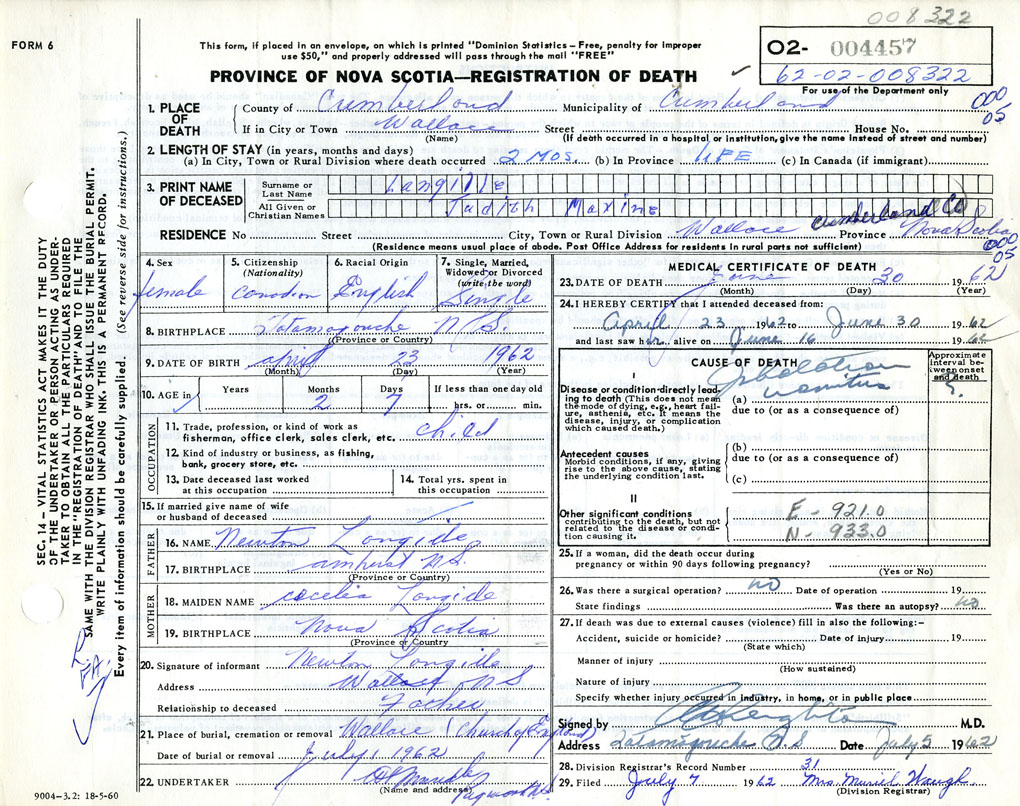 008322
FORM 6
This form, if placed in an envelope, on which is printed "Dominion Statistics – Free, penalty for improper
use $50," and properly addressed will pass through the mail "FREE"
O2- 004457
62-02-008322
For use of the Department only
PROVINCE OF NOVA SCOTIA—REGISTRATION OF DEATH
000
05
1. PLACE OF DEATH
County of Cumberland Municipality of Cumberland
If in City or Town Wallace Street House No.
(Name) (If death occurred in a hospital or institution, give the name instead of street and number)
2. LENGTH OF STAY (in years, months and days)
(a) In City, Town or Rural Division where death occurred 2 mos. (b) In Province LIFE (c) In Canada (if immigrant)
3. PRINT NAME OF DECEASED
Surname or Last Name Langille
All Given or Christian Names Judith Maxine
Cumberland Co
RESIDENCE No Street City, Town or Rural Division Wallace Province Nova Scotia
(Residence means usual place of abode. Post Office Address for residents in rural parts not sufficient)
000
05
4. Sex
female
5. Citizenship
(Nationality)
Canadian
6. Racial Origin
English
7. Single, Married,
Widowed or Divorced
(write the word)
Single
8. BIRTHPLACE Tatamagouche N.S.
(Province or Country)
9. DATE OF BIRTH April 23 1962
(Month) (Day) (Year)
10. AGE in Years Months Days If less than one day old
2 7 hrs. or min.
OCCUPATION
11. Trade, profession, or kind of work as
fisherman, office clerk, sales clerk, etc. child
12. Kind of industry or business, as fishing,
bank, grocery store, etc.
13. Date deceased last worked
at this occupation
14. Total yrs. spent in
this occupation
15. If married give name of wife
or husband of deceased
FATHER
16. NAME Newton Langille
17. BIRTHPLACE Amherst N.S.
(Province or Country)
MOTHER
18. MAIDEN NAME Cecelia Langille
19. BIRTHPLACE Nova Scotia
(Province or Country)
20. Signature of informant Newton Langille
Address Wallace N S
Relationship to deceased Father
21. Place of burial, cremation or removal Wallace (Church of England)
Date of burial or removal July 1 1962
22. UNDERTAKER
(Name and address) Pugwash N.S.
9004-3.2: 18-5-60
MEDICAL CERTIFICATE OF DEATH
23. DATE OF DEATH June 30 1962
(Month) (Day) (Year)
24. I HEREBY CERTIFY that I attended deceased from:
April 23 1962 to June 30 1962
and last saw her alive on June 16 1962
CAUSE OF DEATH
Approximate interval between onset and death
I
Disease or condition directly leading to death (This does not mean the mode of dying, e.g., heart failure, asthenia, etc. It means the disease, injury, or complication which caused death.)
(a) Inhalation vomitus
due to (or as a consequence of)
Antecedent causes
Morbid conditions, if any, giving rise to the above cause, stating the underlying condition last.
(b)
due to (or as a consequence of)
(c)
II
Other significant conditions
contributing to the death, but not related to the disease or condition causing it.
E - 921.0
N - 933.0
25. If a woman, did the death occur during
pregnancy or within 90 days following pregnancy?
(Yes or No)
26. Was there a surgical operation? NO Date of operation 19
State findings Was there an autopsy? NO
27. If death was due to external causes (violence) fill in also the following:-
Accident, suicide or homicide? Date of injury 19
(State which)
Manner of injury
(How sustained)
Nature of injury
Specify whether injury occurred in industry, in home, or in public place
Signed by M.D.
Address Tatamagouche N S Date July 5 1962
28. Division Registrar's Record Number 31
29. Filed July 7 1962 Mrs. Muriel Waugh
(Division Registrar)
SEC. 114 – VITAL STATISTICS ACT MAKES IT THE DUTY
OF THE UNDERTAKER OR PERSON ACTING AS UNDER-
TAKER TO OBTAIN ALL THE PARTICULARS REQUIRED
IN THE "REGISTRATION OF DEATH" AND TO FILE THE
SAME WITH THE DIVISION REGISTRAR WHO SHALL ISSUE THE BURIAL PERMIT.
WRITE PLAINLY WITH UNFADING INK. THIS IS A PERMANENT RECORD.
Every item of information should be carefully supplied. (See reverse side for instructions.)